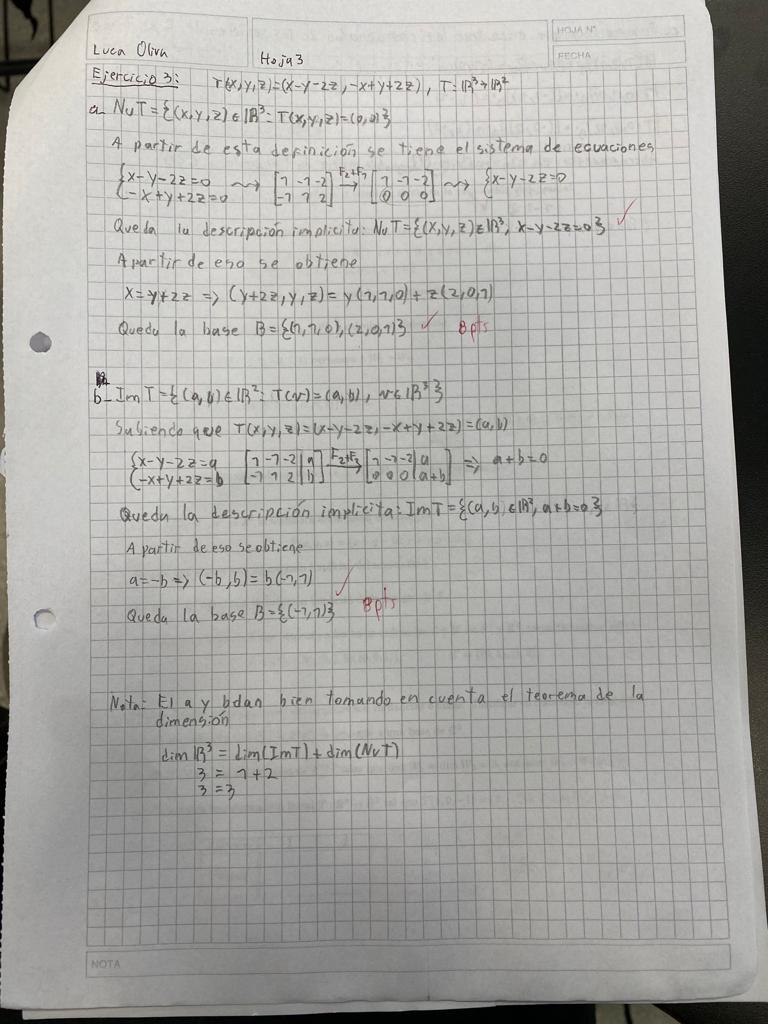 Luca Oliva
Hoja 3
HOJA N°
FECHA
Ejercicio 3: T(x,y,z)=(x-y-2z,-x+y+2z), T:ℝ³→ℝ²
a- NuT={(x,y,z)∈ℝ³: T(x,y,z)=(0,0)}
A partir de esta definición se tiene el sistema de ecuaciones
{x-y-2z=0 ⇝ [1 -1 -2] F₂+F₁→ [1 -1 -2] ⇝ {x-y-2z=0
{-x+y+2z=0 [-1 1 2] [0 0 0]
Queda la descripción implicita: NuT={(x,y,z)∈ℝ³, x-y-2z=0} ✓
A partir de eso se obtiene
x=y+2z => (y+2z,y,z)=y(1,1,0)+z(2,0,1)
Queda la base B={(1,1,0),(2,0,1)} ✓ 8pts
b- ImT={(a,b)∈ℝ²: T(v)=(a,b), v∈ℝ³}
Sabiendo que T(x,y,z)=(x-y-2z,-x+y+2z)=(a,b)
{x-y-2z=a [1 -1 -2|a] F₂+F₁→ [1 -1 -2|a] => a+b=0
{-x+y+2z=b [-1 1 2|b] [0 0 0|a+b]
Queda la descripción implicita: ImT={(a,b)∈ℝ², a+b=0}
A partir de eso se obtiene
a=-b => (-b,b)=b(-1,1) ✓
Queda la base B={(-1,1)} 8pts
Nota: El a y b dan bien tomando en cuenta el teorema de la
dimensión
dim ℝ³ = dim(ImT)+dim(NuT)
3 = 1+2
3 = 3
NOTA